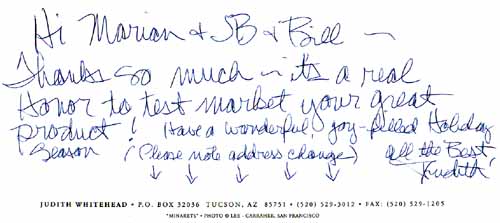 Hi Marian & JB & Bill —
Thanks so much — it's a real
Honor to test market your great
product! Have a wonderful, joy-filled Holiday
Season (Please note address change) All the Best,
Judith
↓ ↓ ↓ ↓ ↓
JUDITH WHITEHEAD • P.O. BOX 32036 TUCSON, AZ 85751 • (520) 529-3012 • FAX: (520) 529-1205
"MINARETS" • PHOTO © LEE CARRAHER, SAN FRANCISCO